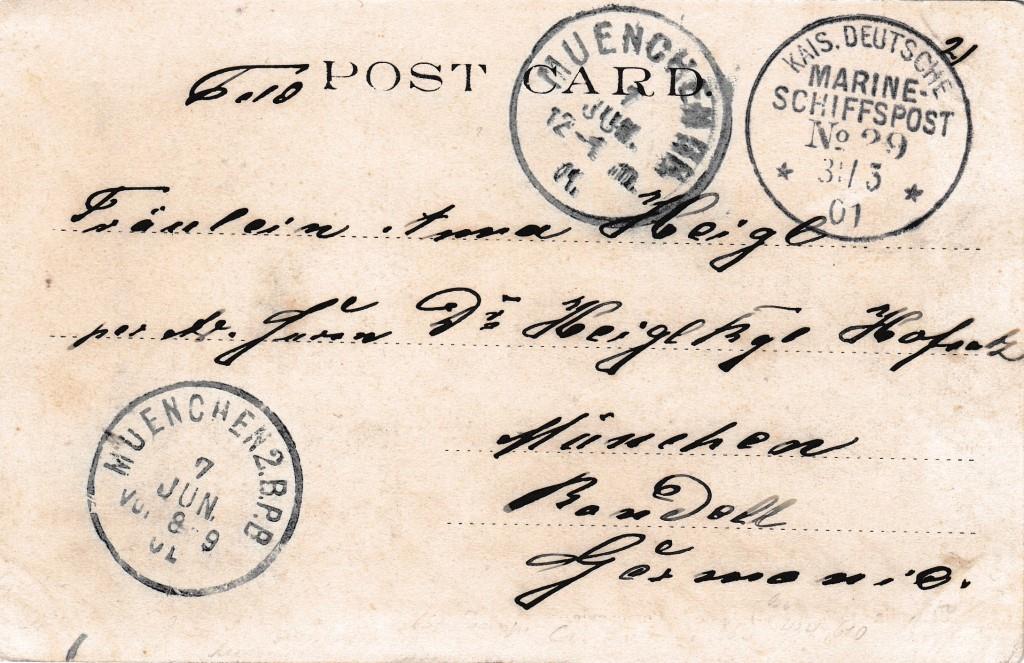 POST CARD.
MUENCHEN
7
JUN.
12-1
KAIS. DEUTSCHE
MARINE-
SCHIFFSPOST
No 29
31/5
01
Fräulein Anna Heigl
per Dr. Heigl Kgl
München
Rondell
Germania.
MUENCHEN 2. B.P.B
7
JUN.
Vor 8-9
01